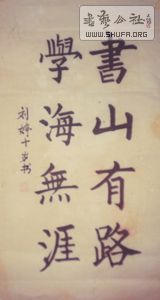 書山有路
學海無涯
刘婷十岁书
書藝公社
WWW.SHUFA.ORG